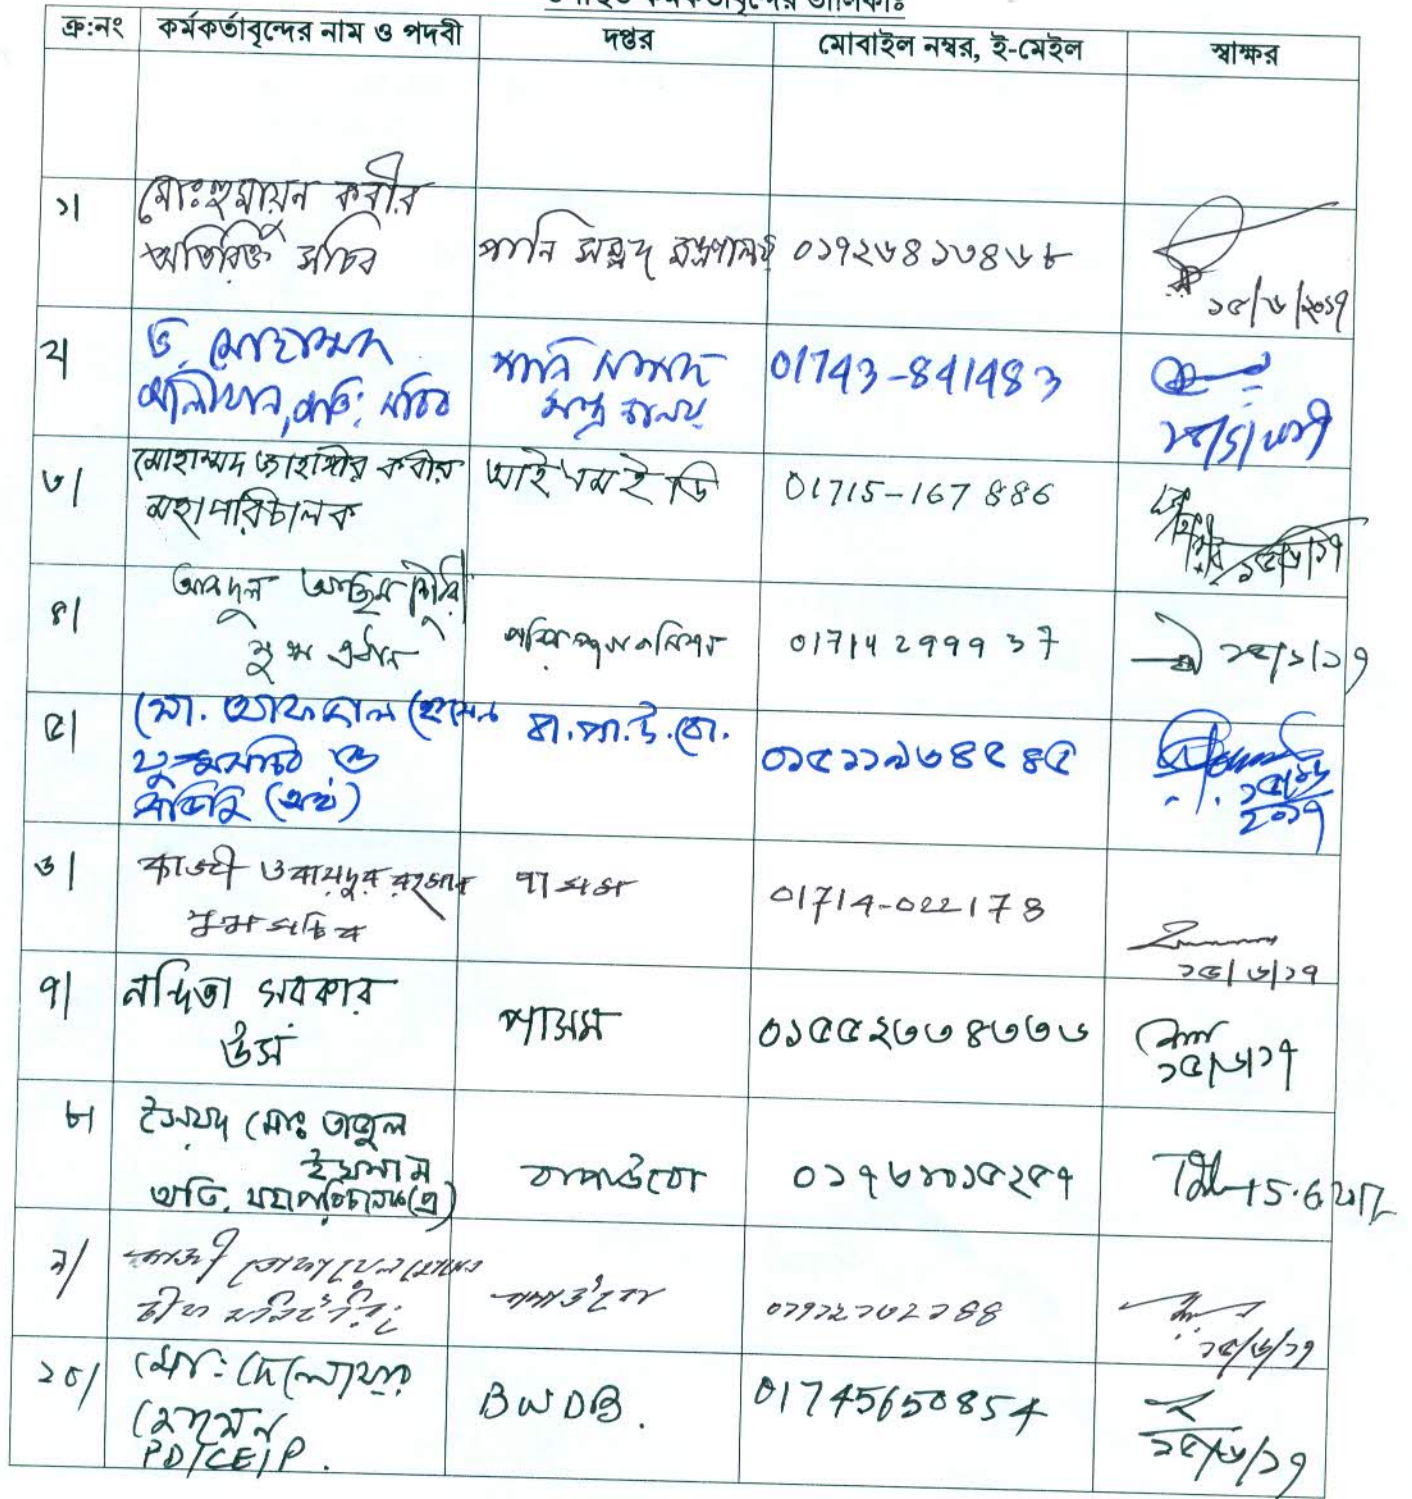 কর্মকর্তাবৃন্দের তালিকাঃ
ক্র:নং কর্মকর্তাবৃন্দের নাম ও পদবী দপ্তর মোবাইল নম্বর, ই-মেইল স্বাক্ষর
১। মোঃ হুমায়ুন কবীর
অতিরিক্ত সচিব পানি সম্পদ মন্ত্রণালয়
১৫/৬/২০১৭
২। ড. মোহাম্মদ
আলী খান, অতি: সচিব পানি সম্পদ
মন্ত্রণালয় 01743-841483
৩। মোহাম্মদ জাহাঙ্গীর কবীর
মহাপরিচালক আই এম ই ডি 01715-167886
১৫/৬/১৭
৪। আবদুল আজিম চৌধুরী
যুগ্ম প্রধান পরিকল্পনা কমিশন 01714299937
৫। মো. আফজাল হোসেন
যুগ্মসচিব ও
(অর্থ) বা.পা.উ.বো. ০১৫১১৯৬৪৫৪৫
১৫/৬
২০১৭
৬। কাজী ওবায়দুর রহমান
যুগ্মসচিব পাসম 01714-022178
১৫/৬/১৭
৭। নন্দিতা সরকার
উস পাসম ০১৫৫২৩৩৪৩৩৬
১৫/৬/১৭
৮। সৈয়দ মোঃ
ইসলাম
অতি. মহাপরিচালক(প্র) বাপাউবো
15.6.2017
৯/ কাজী তোফায়েল হোসেন
বাপাউবো
১৫/৬/১৭
১০/ মো: দেলোয়ার
হোসেন
PD/CEIP. BWDB. 01745650854
১৫/৬/১৭